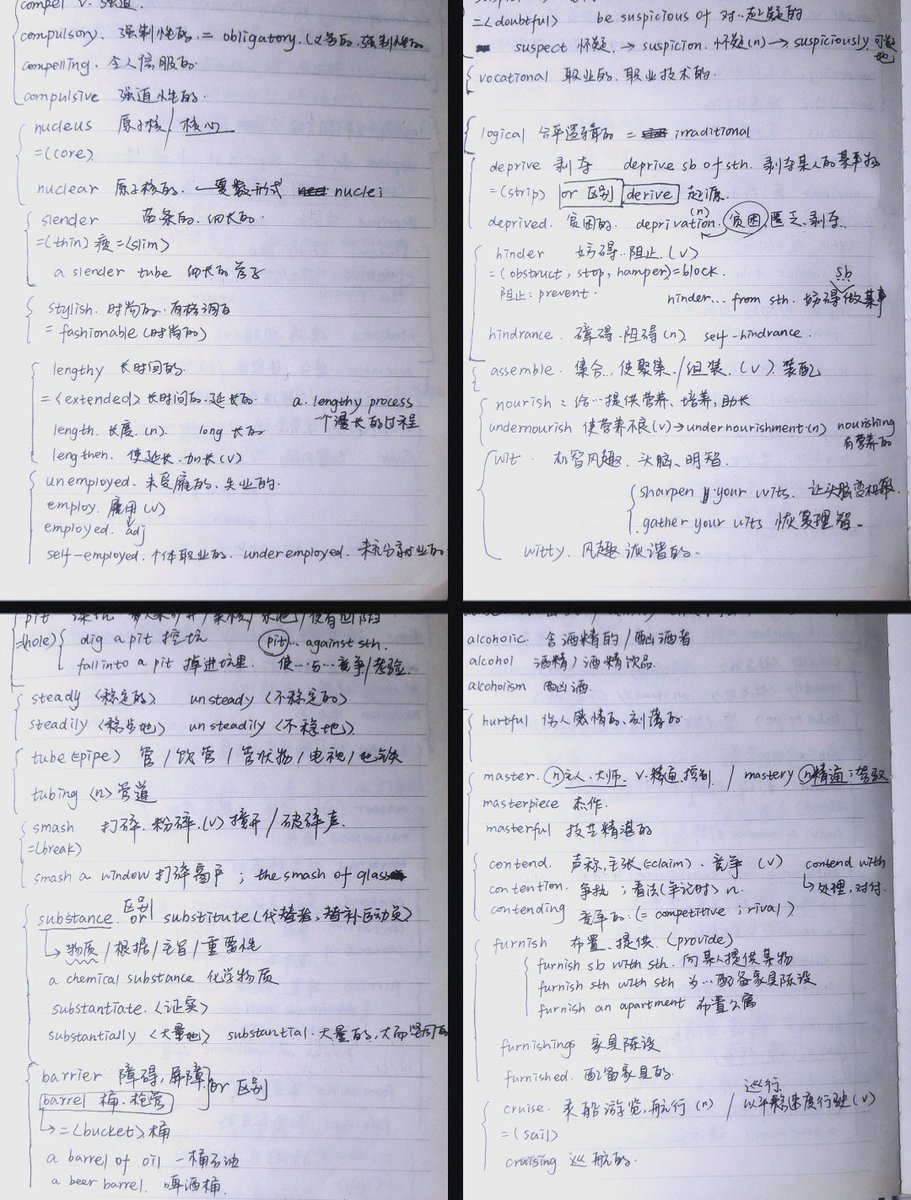 compel v. 强迫.
compulsory. 强制性的. = obligatory. (义务的. 强制性的
compelling. 令人信服的.
compulsive 强迫性的.
nucleus 原子核/核心
=(core)
nuclear 原子核的. 复数形式 nuclei
slender 苗条的. 细长的.
=(thin) 瘦 =(slim)
a slender tube 细长的管子
stylish. 时尚的. 有格调的
= fashionable (时尚的)
lengthy 长时间的.
=<extended> 长时间的. 延长的. a lengthy process
一个漫长的过程
length. 长度. (n). long 长的
lengthen. 使延长. 加长(v)
unemployed. 未受雇的. 失业的.
employ. 雇用(v)
employed. adj
self-employed. 个体职业的. underemployed. 未充分就业的
=<doubtful> be suspicious of 对…起疑的
suspect 怀疑. → suspicion. 怀疑(n) → suspiciously 可疑地
vocational 职业的. 职业技术的.
logical 合乎逻辑的 = irraditional
deprive 剥夺 deprive sb of sth. 剥夺某人的某事物
=(strip) or 区别 derive 起源.
deprived. 贫困的. deprivation. (n) 贫困 匮乏. 剥夺.
hinder 妨碍. 阻止. (v)
=(obstruct, stop, hamper)=block.
阻止: prevent. hinder... from sth. 妨碍 sb 做某事
hindrance. 障碍. 阻碍(n) self-hindrance.
assemble. 集合. 使聚集./组装. (v) 装配
nourish: 给…提供营养、培养, 助长
undernourish 使营养不良(v) → undernourishment(n) nourishing
有营养的
wit. 机智风趣. 头脑、明智.
sharpen your wits. 让头脑变机敏
gather your wits 恢复理智.
witty. 风趣诙谐的.
pit
=(hole) dig a pit 挖坑 pit... against sth.
fall into a pit 掉进坑里. 使…与…竞争/考验
steady <稳定的> unsteady <不稳定的>
steadily <稳步地> unsteadily <不稳地>
tube (=pipe) 管/饮管/管状物/电视/地铁
tubing <n> 管道
smash 打碎. 粉碎. (v) 撞开/破碎声.
=(break)
smash a window 打碎窗户; the smash of glass
substance. 区别 or substitute (代替者, 替补运动员)
→ 物质/根据/主旨/重要性
a chemical substance 化学物质
substantiate. <证实>
substantially <大量地> substantial. 大量的, 大而坚固的
barrier 障碍, 屏障 or 区别
barrel 桶. 枪管
→ =<bucket> 桶
a barrel of oil 一桶石油
a beer barrel. 啤酒桶.
alcoholic. 含酒精的/酗酒者
alcohol 酒精/酒精饮品
alcoholism 酗酒.
hurtful 伤人感情的. 刻薄的
master. (n) 主人. 大师. v. 精通. 控制 / mastery (n) 精通;掌握
masterpiece 杰作.
masterful 技艺精湛的
contend. 声称, 主张 (=claim). 竞争 (v) contend with
contention. 争执; 看法(争论时) n. → 处理, 对付.
contending 竞争的. (= competitive; rival)
furnish 布置、提供. (provide)
furnish sb with sth. 向某人提供某物
furnish sth with sth 为…配备家具陈设
furnish an apartment 布置公寓
furnishings 家具陈设
furnished. 配备家具的.
cruise. 乘船游览, 航行 (n) / 巡行. 以平稳速度行驶(v)
=(sail)
cruising 巡航的.